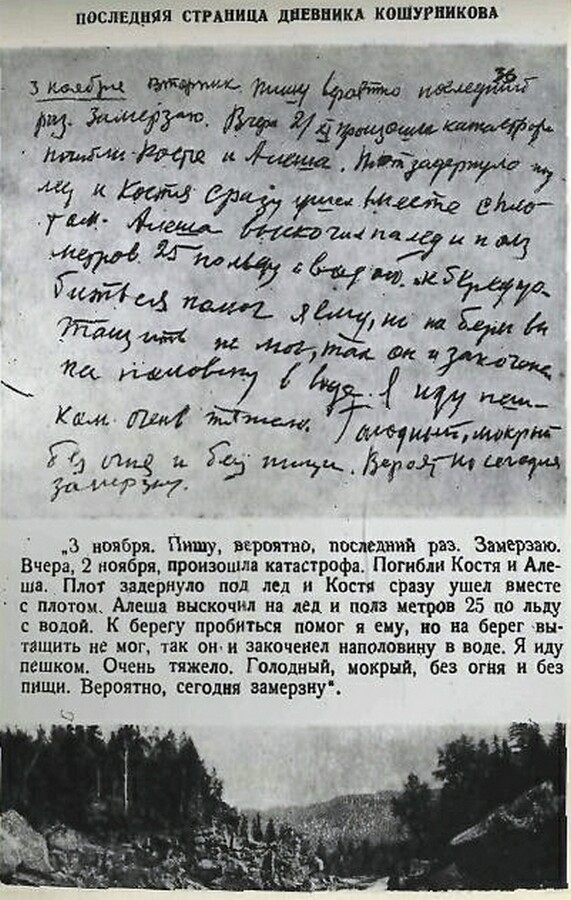 ПОСЛЕДНЯЯ СТРАНИЦА ДНЕВНИКА КОШУРНИКОВА
36
3 ноября Вторник. Пишу вероятно последний
раз. Замерзаю. Вчера 2/XI произошла катастрофа
погибли Костя и Алеша. Плот задернуло под
лед и Костя сразу ушел вместе с пло-
том. Алеша выскочил на лед и полз
метров 25 по льду с водой. К берегу про-
биться помог я ему, но на берег вы
тащить не мог, так он и закоченел
на половину в воде. Я иду пеш-
ком. Очень тяжело. Голодный, мокрый
без огня и без пищи. Вероятно сегодня
замерзну.
„3 ноября. Пишу, вероятно, последний раз. Замерзаю.
Вчера, 2 ноября, произошла катастрофа. Погибли Костя и Але-
ша. Плот задернуло под лед и Костя сразу ушел вместе
с плотом. Алеша выскочил на лед и полз метров 25 по льду
с водой. К берегу пробиться помог я ему, но на берег вы-
тащить не мог, так он и закоченел наполовину в воде. Я иду
пешком. Очень тяжело. Голодный, мокрый, без огня и без
пищи. Вероятно, сегодня замерзну“.